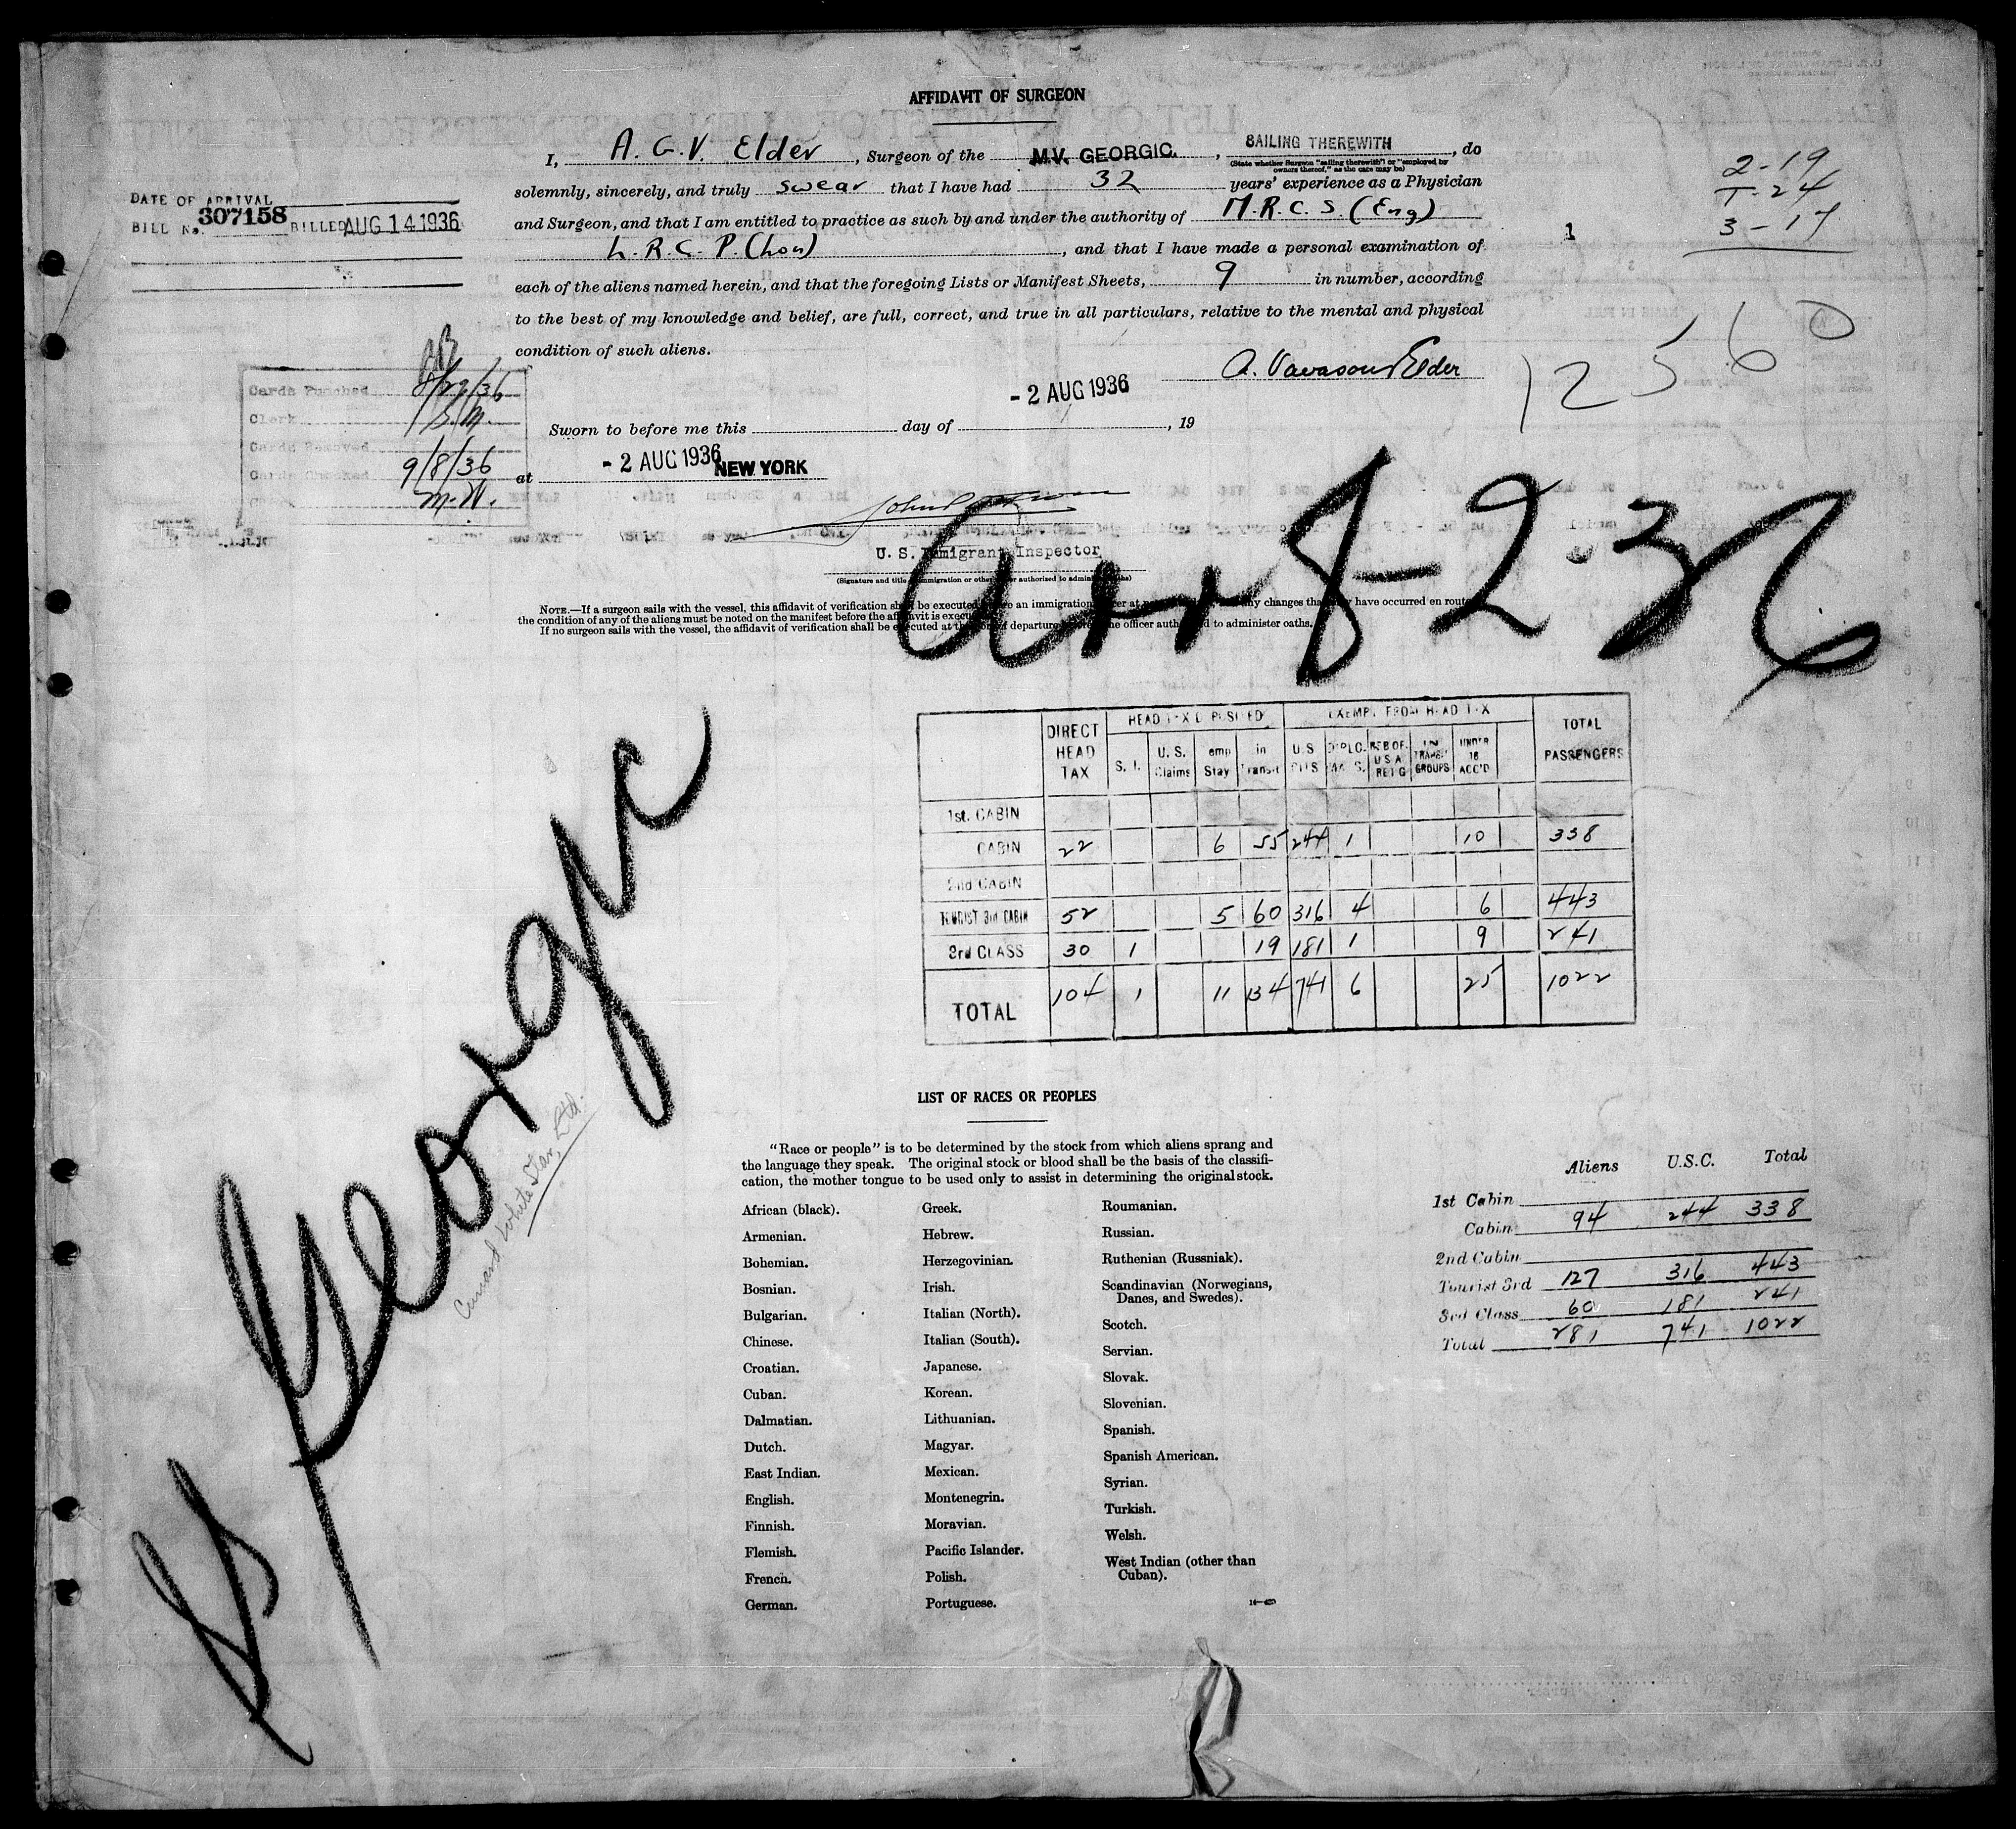 AFFIDAVIT OF SURGEON
I, A. G. V. Elder, Surgeon of the M.V. GEORGIC, SAILING THEREWITH, do
(State whether Surgeon "sailing therewith" or "employed by owners thereof," as the case may be)
solemnly, sincerely, and truly swear that I have had 32 years' experience as a Physician
and Surgeon, and that I am entitled to practice as such by and under the authority of M.R.C.S. (Eng)
L.R.C.P. (Lon), and that I have made a personal examination of
each of the aliens named herein, and that the foregoing Lists or Manifest Sheets, 9 in number, according
to the best of my knowledge and belief, are full, correct, and true in all particulars, relative to the mental and physical
condition of such aliens.
A. Vavasour Elder
- 2 AUG 1936
Sworn to before me this day of , 19
at - 2 AUG 1936 NEW YORK
U. S. Immigrant Inspector
(Signature and title of immigration or other officer authorized to administer oaths)
NOTE.—If a surgeon sails with the vessel, this affidavit of verification shall be executed before an immigration officer at any changes that may have occurred en route
the condition of any of the aliens must be noted on the manifest before the affidavit is executed.
If no surgeon sails with the vessel, the affidavit of verification shall be executed at the port of departure before the officer authorized to administer oaths.
DATE OF ARRIVAL
BILL No. 307158 BILLED AUG 14 1936
Cards Punched 8/29/36
Clerk S.M.
Cards Removed
Cards Checked 9/8/36
M.W.
2-19
T-24
3-17
1
12560
Arr 8-2-36
SS Georgic
Cunard White Star, Ltd.
DIRECT HEAD TAX HEAD TAX DEPOSITED EXEMPT FROM HEAD TAX TOTAL PASSENGERS
S. I. U. S. Claims Temp Stay in Transit U.S. CITS DIPLOMATS. U.S.A. IN TRANSIT GROUPS UNDER 16 ACC'D
1st. CABIN
CABIN 22 6 55 244 1 10 338
2nd CABIN
TOURIST 3rd CABIN 52 5 60 316 4 6 443
3rd CLASS 30 1 19 181 1 9 241
TOTAL 104 1 11 134 741 6 25 1022
LIST OF RACES OR PEOPLES
"Race or people" is to be determined by the stock from which aliens sprang and
the language they speak. The original stock or blood shall be the basis of the classifi-
cation, the mother tongue to be used only to assist in determining the original stock.
African (black).
Armenian.
Bohemian.
Bosnian.
Bulgarian.
Chinese.
Croatian.
Cuban.
Dalmatian.
Dutch.
East Indian.
English.
Finnish.
Flemish.
French.
German.
Greek.
Hebrew.
Herzegovinian.
Irish.
Italian (North).
Italian (South).
Japanese.
Korean.
Lithuanian.
Magyar.
Mexican.
Montenegrin.
Moravian.
Pacific Islander.
Polish.
Portuguese.
Roumanian.
Russian.
Ruthenian (Russniak).
Scandinavian (Norwegians,
Danes, and Swedes).
Scotch.
Servian.
Slovak.
Slovenian.
Spanish.
Spanish American.
Syrian.
Turkish.
Welsh.
West Indian (other than
Cuban).
Aliens U.S.C. Total
1st Cabin
Cabin 94 244 338
2nd Cabin
Tourist 3rd 127 316 443
3rd Class 60 181 241
Total 281 741 1022